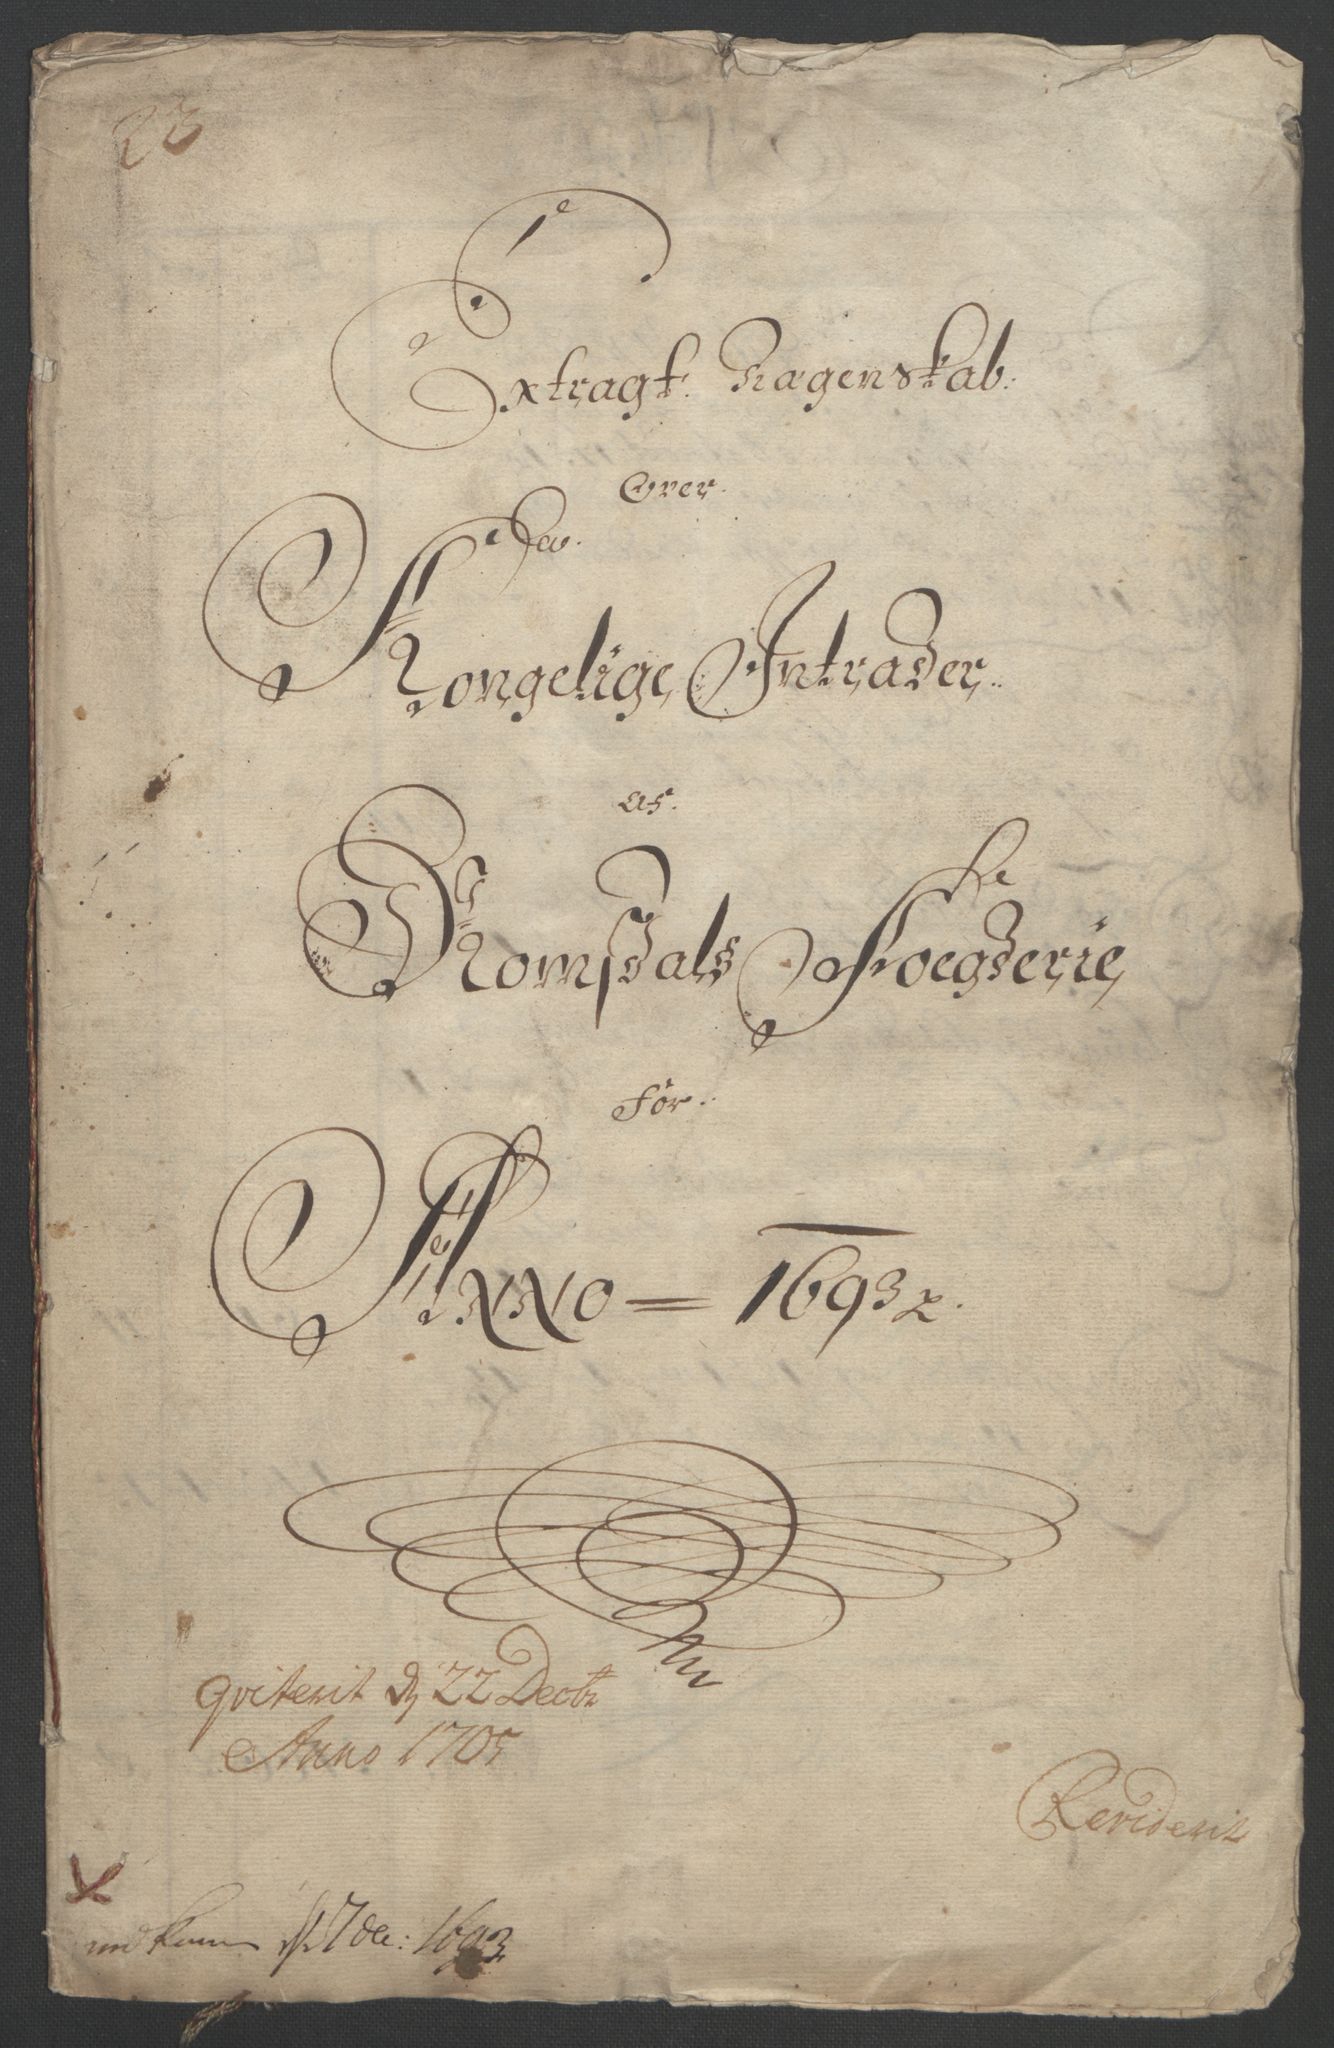 23
Extragt Rægenskab
Over
De
Kongelige Intrader
Af
Romsdals Foegderie
För
Anno = 1693
qviterit d 22 Decbr
Anno 1705
Reviderit
indkom 1693